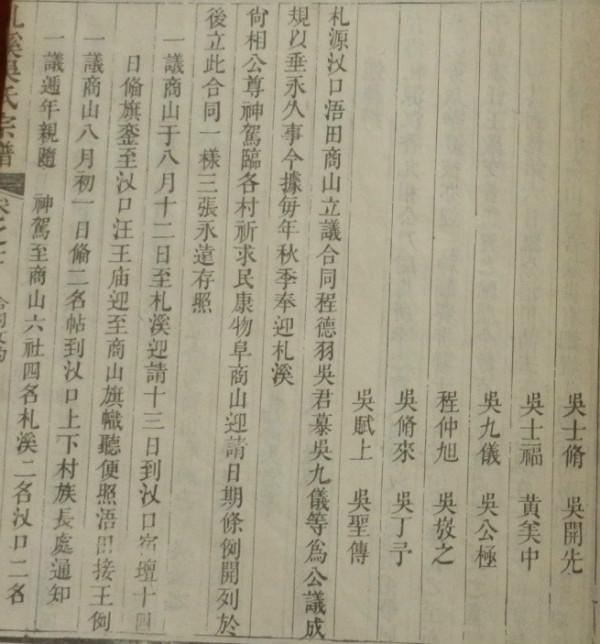 吳士脩 吳開先
吳士福 黃美中
吳九儀 吳公極
程仲旭 吳敬之
吳脩來 吳丁予
吳賦上 吳聖傳
札源汊口浯田商山立議合同程德羽吳君慕吳九儀等爲公議成
規以垂永久事今據每年秋季奉迎札溪
尙相公尊神駕臨各村祈求民康物阜商山迎請日期條例開列於
後立此合同一樣三張永遠存照
一議商山于八月十二日至札溪迎請十三日到汊口宿壇十四
日脩旗鑾至汊口汪王庙迎至商山旗幟聽便照浯田接王例
一議商山八月初一日脩二名帖到汊口上下村族長處通知
一議遞年親隨 神駕至商山六社四名札溪二名汊口二名
札溪吳氏宗譜 合同文約